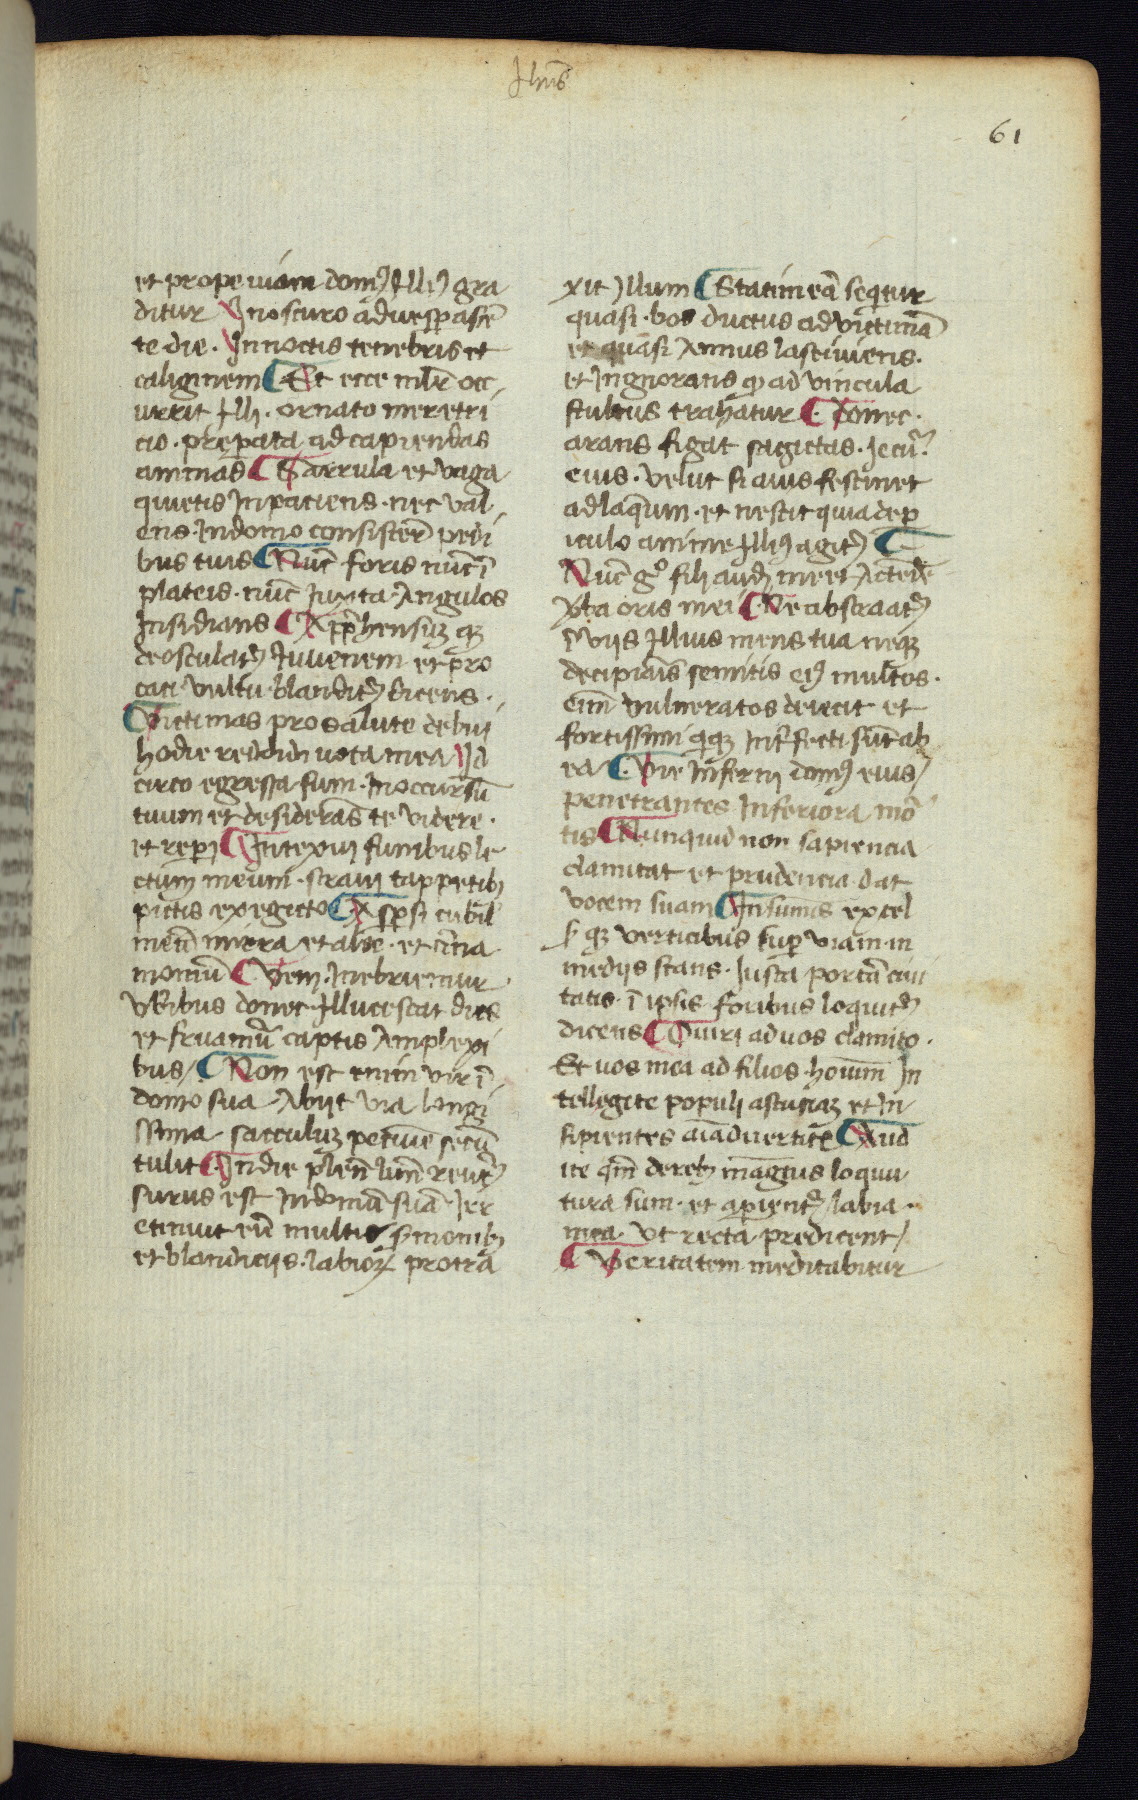 Jhus̄
61
et prope viam domꝰ Illiꝰ gra
ditur Jnoscuro aduesꝑascē
te die . Jn noctis tenebris et
caliginem ¶ Et ecce mlr̄ occ
urrit Illi . ornato meretri
cio . preparata ad capiendas
animas ¶ Garrula et vaga
quietis Inpaciens . nec val
ens . Indomo consisterē pedi
bus tuis ¶ Nūc foris nūc ī
plateis . nūc Iuxta . Angulos
Insidians ¶ Apprehensūꝫ qꝫ
deosculatur Iuuenem et pro
caci vultu . blanditur dicens .
¶ Victimas pro salute debui
hodie reddidi uota mea Id
circo egressa sum . In occursū
tuum et desiderās te videre .
et reperi ¶ Intexui funibus le
ctum meum . straui tappetibꝫ
pictis ex egicto ¶ Aspersi cubil
meū mirra et aloe . et cīna
momū ¶ Veni . Inebriemur
vberibus donec Illucescat dies
et fruamur captis Amplexi
bus / ¶ Non est enim vir ī
domo sua Abiit via longi
ssima sacculuꝫ pecunie secū
tulit ¶ In die plenē lunē reuer
surus est In domū suā . Irr
etiuit eū multis ẜmonibꝫ
et blandiciis . labioꝝ protra
xit Jllum ¶ Statim eā seqtur
quasi . bos ductus ad victimā
et quasi Annus lasciuiens .
et Ingnorans ꝙ ad vincula
stultus trahatur ¶ Donec .
arans figat sagictas . Jecur
eius . velut si auis festinet
ad laqum . et nescit quia de ꝑ
iculo anime Illiꝰ agitur ¶
Nūc gͦ fili audi me et Actende
vba oris mei ¶ Ne abstraatur
ī viis Illius mens tua neqꝫ
decipiais semitis eiꝰ multos .
enim vulneratos deiecit et
fortissimi qiqꝫ Inffecti sūt ab
ea ¶ Vie Inferni domꝰ eius /
penetrantes Inferiora mor
tis ¶ Nunquid non sapiencia
clamitat et prudencia . dat
vocem suam ¶ In sumis excel
s qꝫ verticibus super viam in
mediis stans . Iusta portā ciui
tatis . ī ipsis foribus loquitur
dicens ¶ O viri ad uos clamito .
Et uos mea ad filios . hominum In
tellegite populi astuciaꝫ et In
sipientes aīaduertite ¶ Aud
ite qm̄ de rebꝫ magnis loqui
tura sum . et aperientur labia .
mea . Vt recta predicent /
¶ Veritatem meditabitur